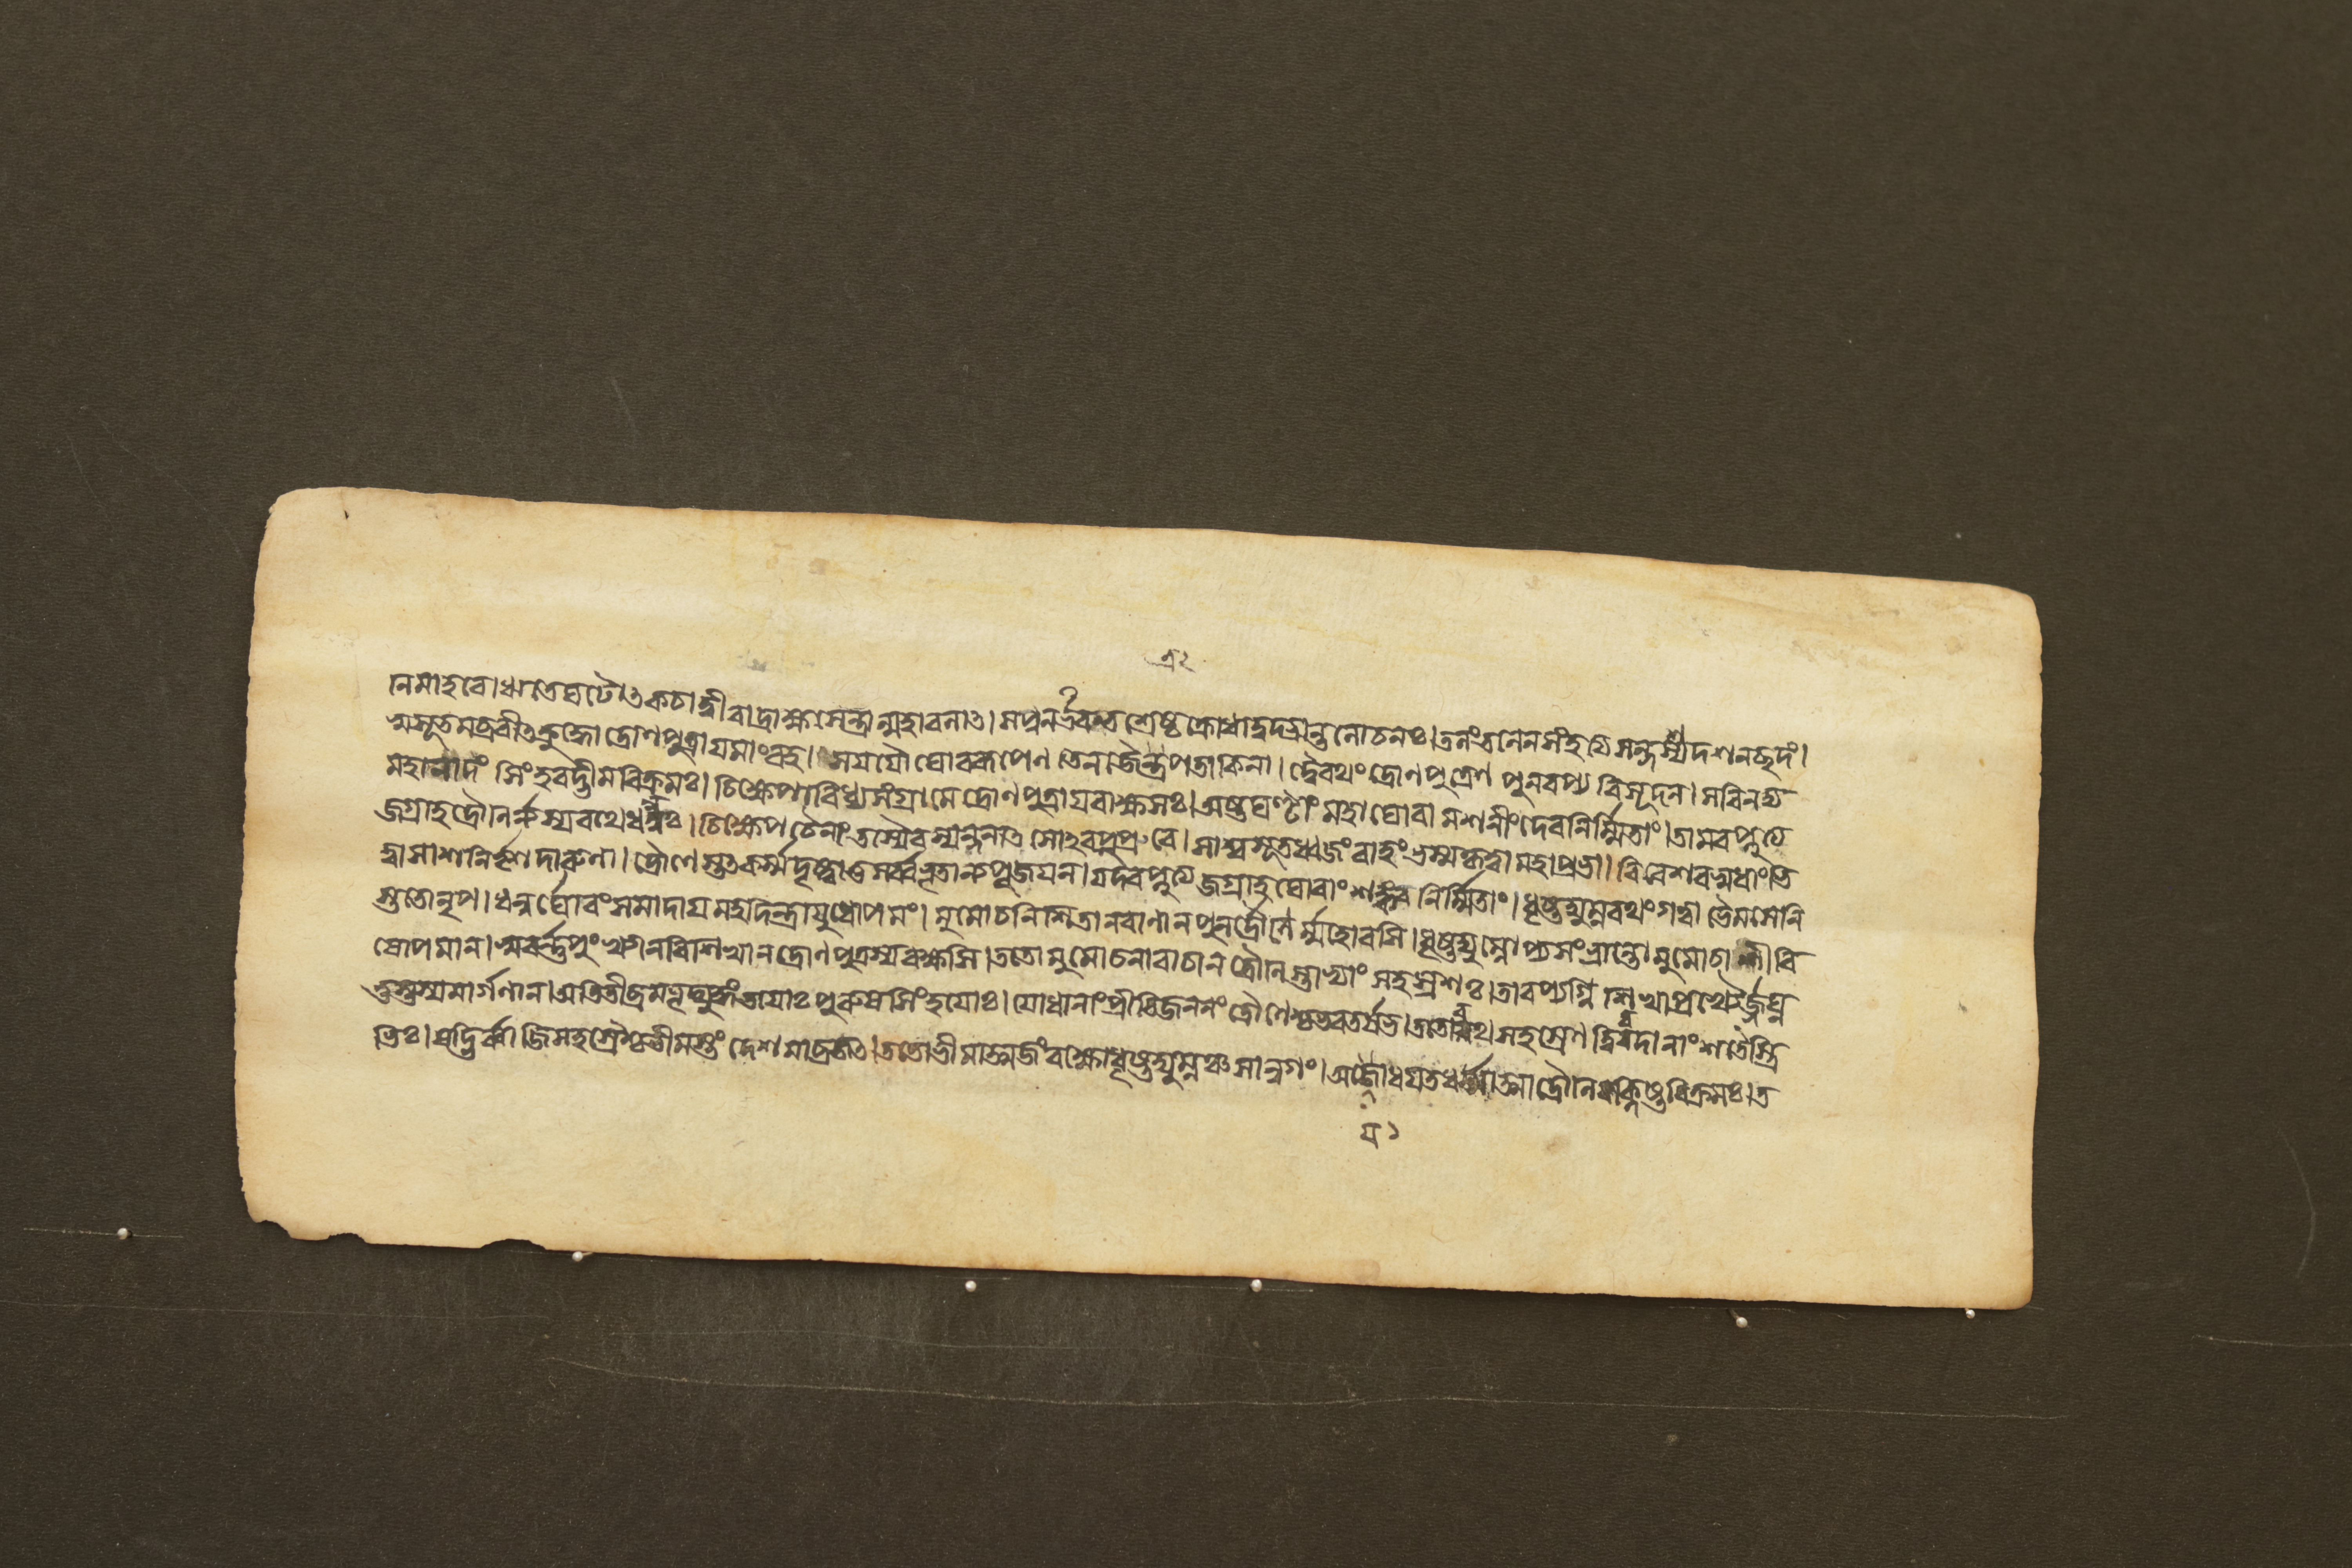 নিমাহবে। ঋতে ঘটোৎকচাদ্বীরাদ্রাক্ষসেন্দ্রান্মহাবলাৎ। স পুনর্ভরতশ্রেষ্ঠ ক্রোধাদ্রক্তান্তলোচনঃ। তলং তলেন সংহত্য সন্দশ্য দশনচ্ছদং।
স্বসূতমব্রবীৎ ক্রুদ্ধো দ্রোণপুত্রায় মাং বহ। স যযৌ ঘোররূপেণ তেন জৈত্রপতাকিনা। দ্বৈরথং দ্রোণপুত্রেণ পুনরপ্যরিসূদন। স বিনদ্য
মহানাদং সিংহবদ্ভীমবিক্রমঃ। চিক্ষেপাবিধ্য সংগ্রামে দ্রোণপুত্রায় রাক্ষসঃ। অষ্টঘণ্টাং মহাঘোরামশনীং দেবনির্ম্মিতাং। তামবপ্লুত্য
জগ্রাহ দ্রৌণির্ন্যস্য রথে ধনুঃ। চিক্ষেপ চৈনাং তস্যৈব স্যন্দনাৎ সোঽবপুপ্লুবে। সাশ্বসূতধ্বজং বাহং ভস্ম কৃত্বা মহাপ্রভা। বিবেশ বসুধাং ভি
ত্ত্বা সাশনির্ভৃশদারুণা। দ্রৌণেস্তৎকর্ম্ম দৃষ্ট্বা তু সর্ব্বভূতান্যপূজয়ন। যদবপ্লুত্য জগ্রাহ ঘোরাং শঙ্করনির্ম্মিতাং। ধৃষ্টদ্যুম্নরথং গত্বা ভৈমসেনি
স্ততো নৃপ। ধনুর্ঘোরং সমাদায় মহদিন্দ্রায়ুধোপমং। মুমোচ নিশিতান বাণান পুনর্দ্রৌণের্ম্মহোরসি। ধৃষ্টদ্যুম্নোপ্যসংভ্রান্তো মুমোচাশীবি
ষোপমান। স্বর্ণপুংখান বিশিখান দ্রোণপুত্রস্য বক্ষসি। ততো মুমোচ নারাচান দ্রৌণিস্তাভ্যাং সহস্রশঃ। তাবপ্যগ্নিশিখাপ্রখ্যৈর্জঘ্ন
তুস্তস্য মার্গণান। অতিতীব্রমভূদ্যুদ্ধং তয়োঃ পুরুষসিংহয়োঃ। যোধানাং প্রীতিজননং দ্রৌণেশ্চ ভরতর্ষভ। ততো রথসহস্রেণ দ্বিরদানাং শতৈস্ত্রি
ভিঃ। ষড্ভির্ব্বাজিসহস্রৈশ্চ ভীমস্তং দেশমাব্রজৎ। ততো ভীমাত্মজং রক্ষো ধৃষ্টদ্যুম্নঞ্চ সানুগং। অযোধয়ত ধর্ম্মাত্মা দ্রৌণিরক্লিষ্টবিক্রমঃ। ত
য১